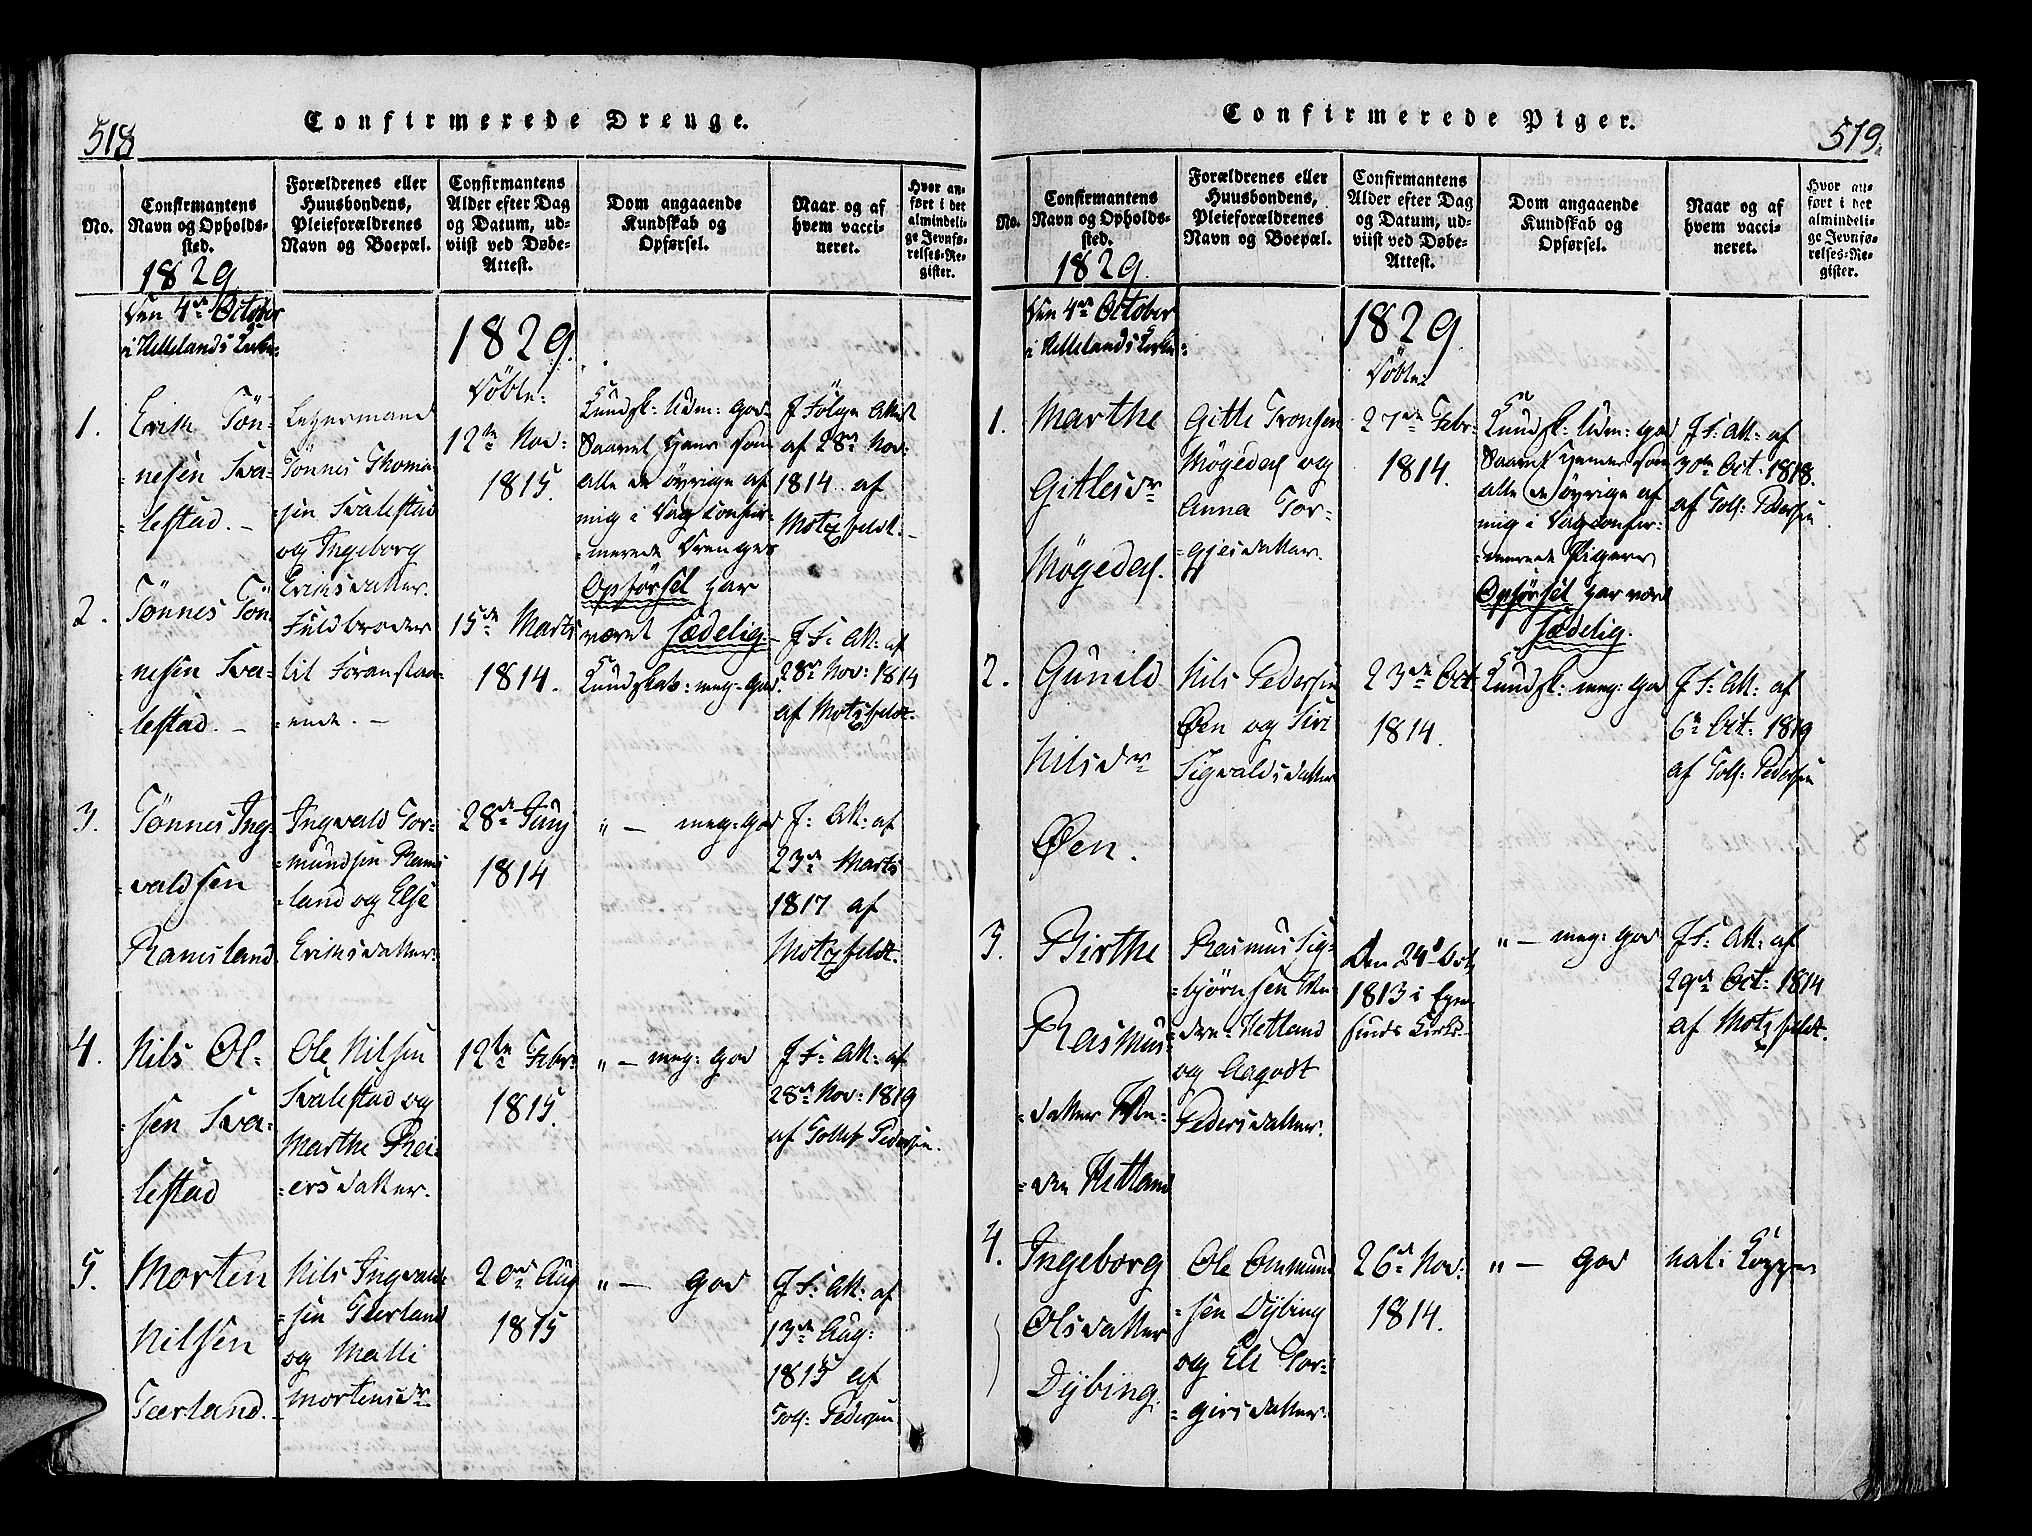 518
Confirmerede Drenge.
No.
Confirmantens
Navn og Opholds-
sted.
1829
Forældrenes eller
Huusbondens,
Pleieforældrenes
Navn og Boepæl.
Confirmantens
Alder efter Dag
og Datum, ud-
viist ved Døbe-
Attest.
Dom angaaende
Kundskab og
Opførsel.
Naar og af
hvem vacci-
neret.
Hvor an-
ført i det
almindeli-
ge Jevnfø-
relses-Re-
gister.
Den 4de October
i Hellelands Kirke
1829.
Döbte:
1.
Erik Tön-
nesen Sva-
-lestad. -
Tönnes Thomæ-
sen Svalestad
og Ingeborg
Eriksdatter.
12te Nov:
1815.
Kundsk: Udm: god
Svaret Hans som
alle de övrige af
mig i Dag confir-
=merede Drenges
Opförsel har
været sædelig. -
J Fölge Att:
af 28de Nov:
1814 af
Motzfeldt. -
2.
Tönnes Tön-
nesen Sva-
lestad. -
Fuldbroder
til Foranstaa-
=ende. -
15de Marts
1814.
Kundskab: meg: god.
J F: Att: af
28de Nov: 1814
af Motzfeldt.
3.
Tönnes Ing-
=valdsen
Ramsland
Ingvald Tor-
=mundsen Rams
=land og Else
Eriksdatter.
28de Juny
1814
" - meg: god
J: Att: af
23de Marts
1817 af
Motzfeldt.
4.
Nils Ol-
=sen Sva-
lestad
Ole Nilsen
Svalestad og
Marthe Rei-
=ersdatter.
12te Febr:
1815.
" - meg: god
J F: Att: af
28de Nov: 1819
af Tollef Pedersen.
5.
Morten
Nilsen
Terland.
Nils Ingvald-
=sen Terland
og Malli
Mortensdr
20de Aug
1815
" - god
J F: Att: af
13de Aug:
1815 af
Toll: Pedersen
519.
Confirmerede Piger.
No.
Confirmantens
Navn og Opholds-
sted.
1829.
Forældrenes eller
Huusbondens,
Pleieforældrenes
Navn og Boepæl.
Confirmantens
Alder efter Dag
og Datum, ud-
viist ved Døbe-
Attest.
Dom angaaende
Kundskab og
Opførsel.
Naar og af
hvem vacci-
neret.
Hvor an-
ført i det
almindeli-
ge Jevnfø-
relses-Re-
gister.
Den 4de October
i Hellelands Kirke:
1829.
Döbte:
1.
Marthe
Gitlesdr
Mögedal.
Gitle Tronsen
Mögedal og
Anna Tor-
=gjesdatter.
27de Febr-
1814.
Kundsk: Udm: god
Svaret Hendes som
alle de övrige af
mig i Dag confir-
=merede Pigers
Opförsel har været
sædelig.
J F: Att: af
30te Oct: 1818.
af Toll: Pedersen
2.
Gunild
Nilsdr
Øen.
Nils Pedersen
Øen og Siri
Sigvaldsdatter
23de Oct
1814.
Kundsk: meg: god
J F: Att: af
6te Oct: 1819
af Toll: Pedersen
3.
Birthe
Rasmus-
=datter Ne-
=dre Hetland
Rasmus Sig-
=björnsen Ne-
=dre-Hetland
og Aagodt
Pedersdatter.
Den 24de Oct
1813 i Eger-
sunds Kirke-
" - meg: god
J F: Att: af
29de Oct: 1814
af Motzfeldt.
4.
Ingeborg
Olsdatter
Dybing.
Ole Ommund
=sen Dybing
og Eli Tor-
=giersdatter.
26de Nov:
1814.
" - god
nat: Kopper